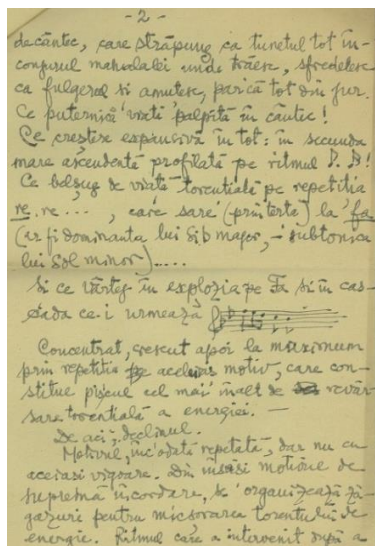 - 2 -
de cântec, care străpung ca tunetul tot în-
conjurul mahalalei unde trăesc, sfredelesc
ca fulgerul si amutesc, parcă tot din jur.
Ce puternică viată palpită în cântec!
Ce crestere expansivă în tot: în secunda
mare ascendentă profilată pe ritmul
Ce belsug de viată torentială pe repetitia
re, re ..., care sare (prin terta) la fa
(ar fi dominanta lui Sib major, - subtonica
lui Sol minor)....
Si ce vârtej în explozia pe Fa si în cas-
cada ce-i urmează
Concentrat, crescut apoi la maximum
prin repetitia aceluiasi motiv, care con-
stitue piscul cel mai înalt de revăr-
sare torentială a energiei. -
De aci, declinul.
Motivul, inc'odată repetată, dar nu cu
aceiasi vigoare. Din însăsi motivul de
supremă încordare, se organizează ză-
gazuri pentru micsorarea torentului de
energie. Ritmul care a intervenit după a